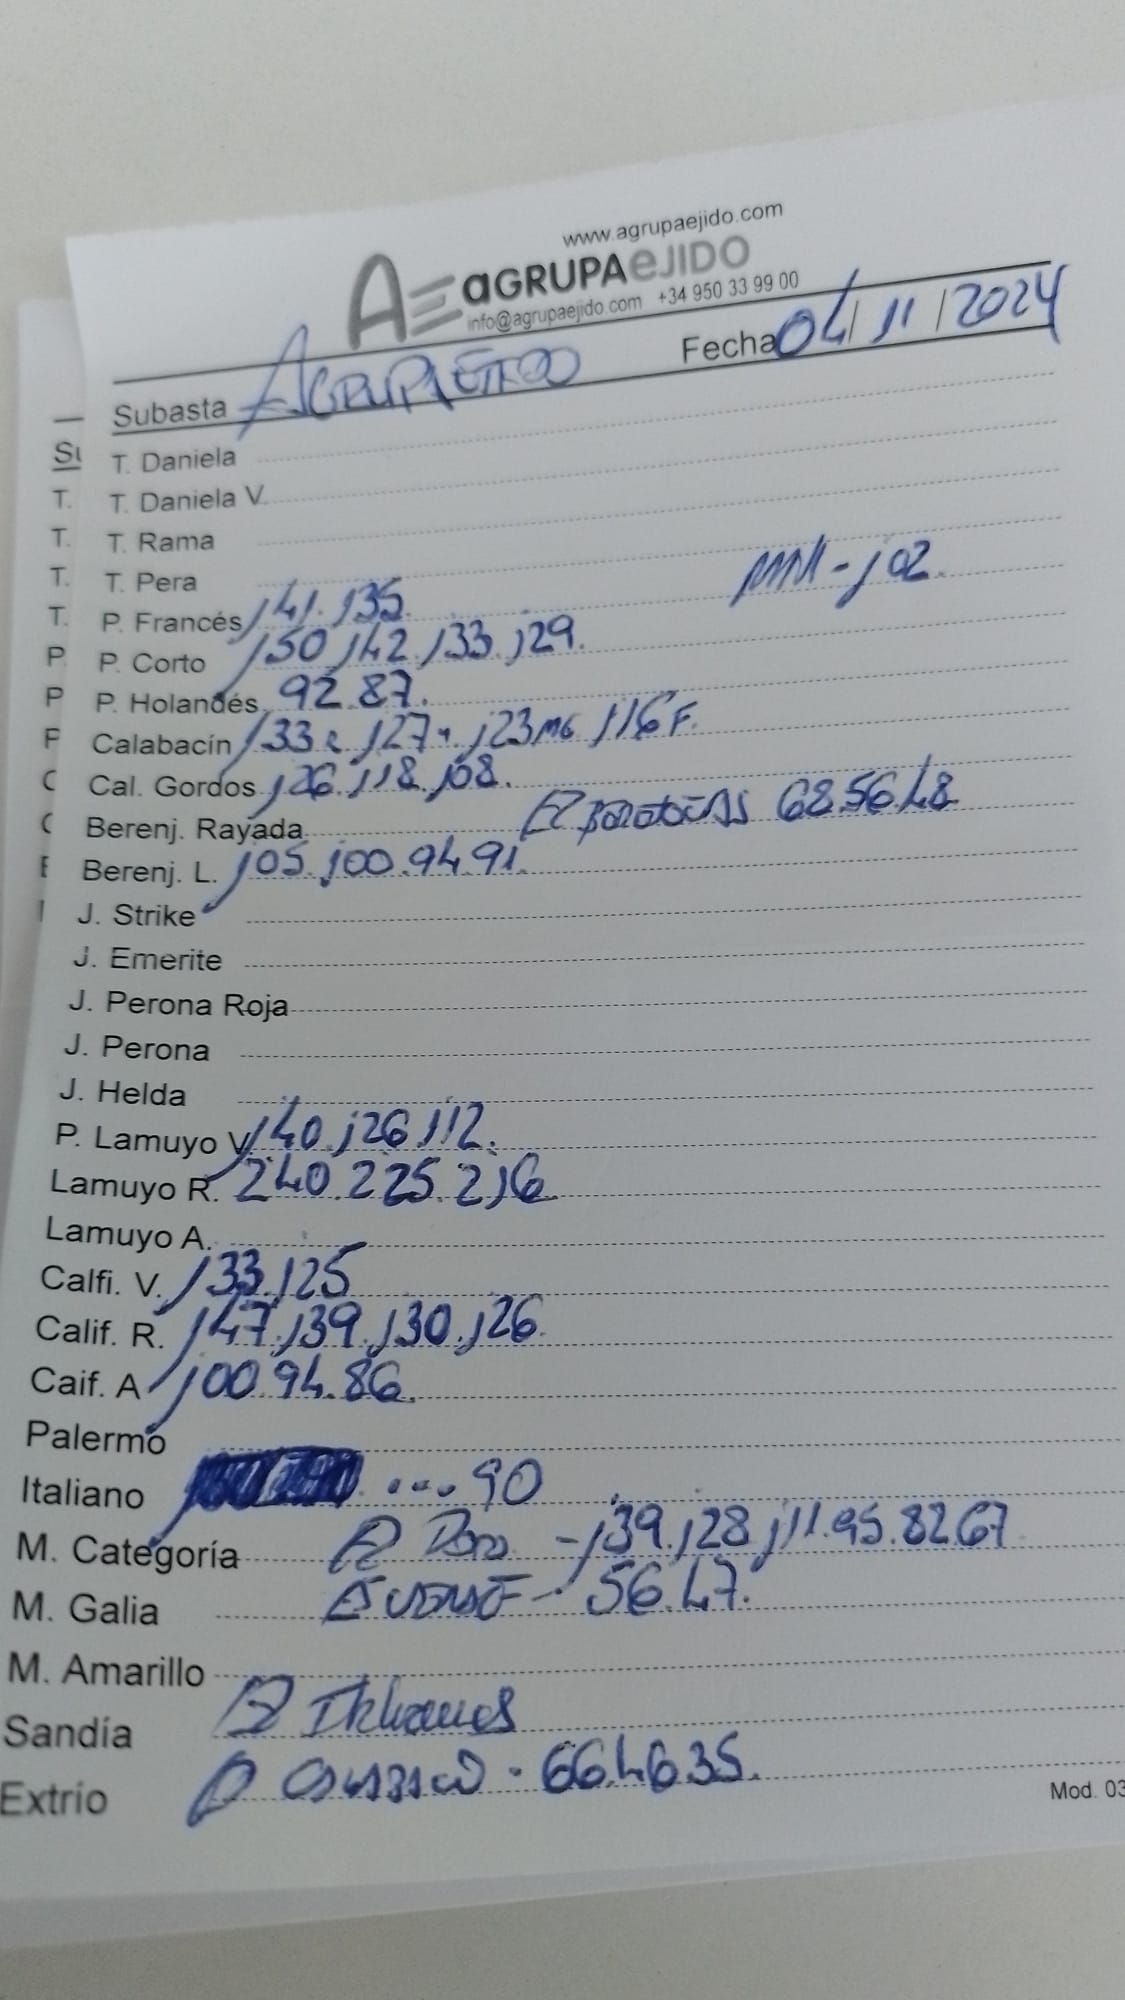 www.agrupaejido.com
AE aGRUPAeJIDO
info@agrupaejido.com +34 950 33 99 00
Subasta AGRUPAEJIDO Fecha 04/11/2024
T. Daniela
T. Daniela V.
T. Rama
T. Pera MM-102.
P. Francés 141.135.
P. Corto 150.142.133.129.
P. Holandés 92.87.
Calabacín 133 127 123 MG 116 F.
Cal. Gordos 126.118.108.
Berenj. Rayada 68.56.48
Berenj. L. 105.100.94.91.
J. Strike
J. Emerite
J. Perona Roja
J. Perona
J. Helda
P. Lamuyo V 140.126.112.
Lamuyo R. 240.225.216
Lamuyo A.
Calfi. V. 133.125
Calif. R. 147.139.130.126.
Caif. A 100.94.86.
Palermo
Italiano ....90
M. Categoría - 139.128.111.95.82.67
M. Galia - 56.47.
M. Amarillo
Sandía
Extrío - 66.46.35.
Mod. 03